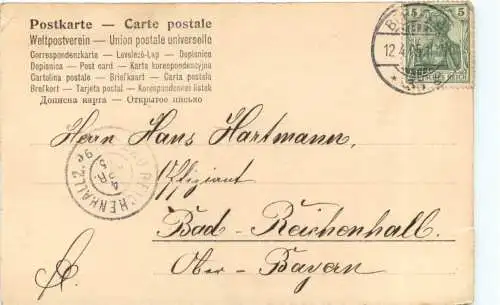 Postkarte – Carte postale
Weltpostverein – Union postale universelle
Correspondenzkarte – Levelező-Lap – Dopisnice
Dopisnica – Post card – Karta korespondencyjna
Cartolina postale – Briefkaart – Carta postala
Brefkort – Tarjeta postal – Korespondenční lístek
Дописна карта – Открытое письмо
5 5
12.4.05
BAD REICHENHALL 2.
Herrn Hans Hartmann,
Offiziant
Bad-Reichenhall.
Ober-Bayern